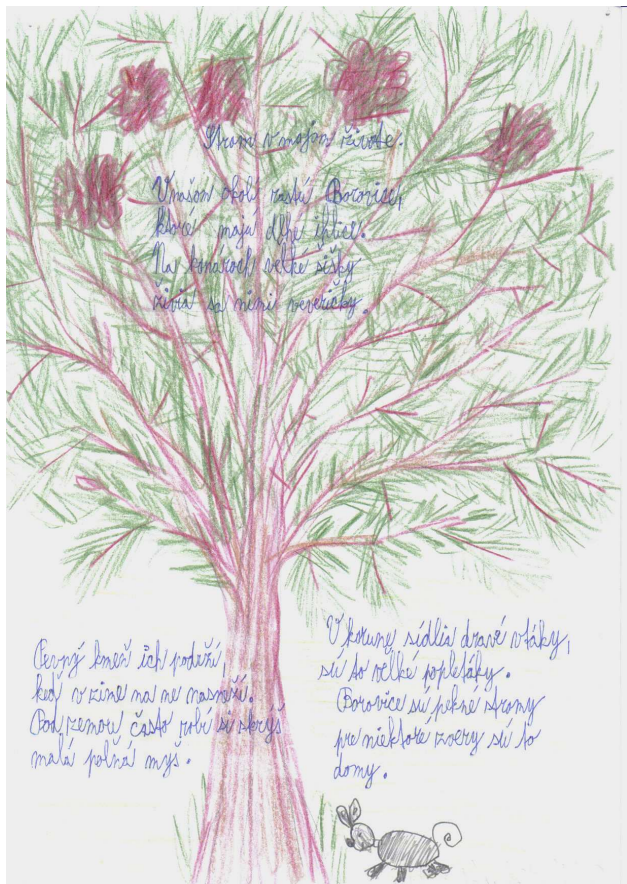 Strom v mojom živote.
V našom okolí rastú Borovice,
ktoré majú dlhé ihlice.
Na konároch veľké šišky
živia sa nimi veveričky.
Pevný kmeň ich podrží,
keď v zime na ne nasneží.
Pod zemou často robí si skrýš
malá poľná myš.
V korune sídlia dravé vtáky,
sú to veľké popletáky.
Borovice sú pekné stromy
pre niektoré zvery sú to
domy.